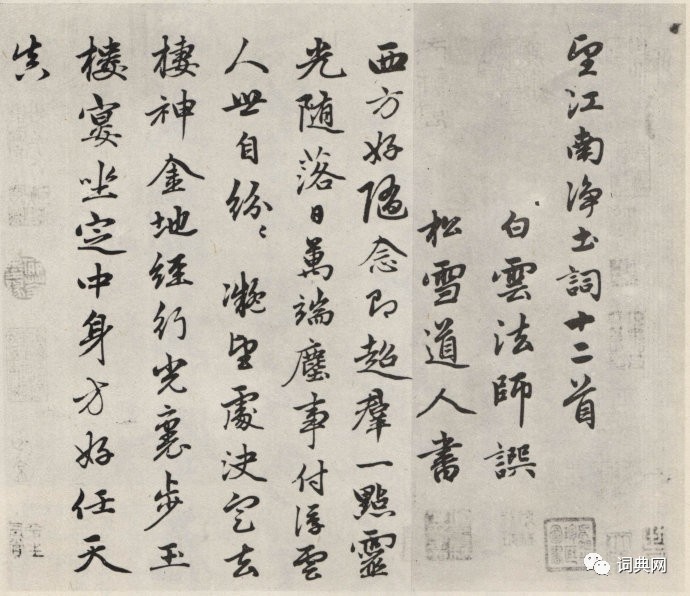 望江南浄土詞十二首
白雲法師譔
松雪道人書
西方好隨念即超羣一點靈
光随落日萬端塵事付浮雲
人世自紛〻凝望處決定去
棲神金地經行光裏步玉
樓宴坐定中身方好任天
真
词典网